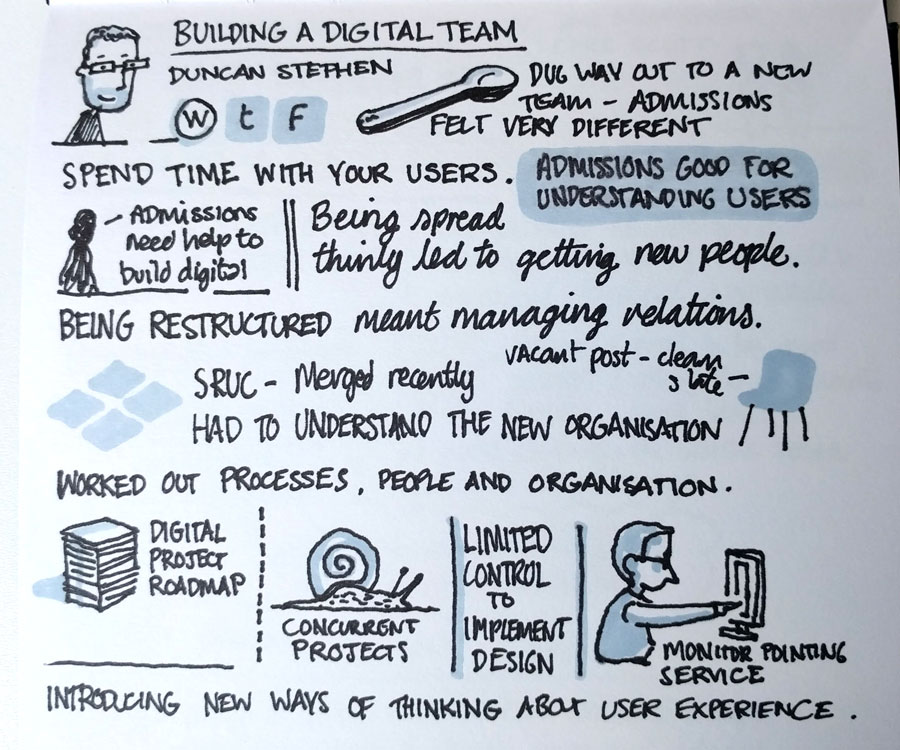 BUILDING A DIGITAL TEAM
DUNCAN STEPHEN
W t F
DUG WAY OUT TO A NEW
TEAM – ADMISSIONS
FELT VERY DIFFERENT
SPEND TIME WITH YOUR USERS.
ADMISSIONS GOOD FOR
UNDERSTANDING USERS
– ADMISSIONS
need help to
build digital
Being spread
thinly led to getting new people.
BEING RESTRUCTURED meant managing relations.
SRUC – Merged recently
vacant post – clean
slate –
HAD TO UNDERSTAND THE NEW ORGANISATION
WORKED OUT PROCESSES, PEOPLE AND ORGANISATION.
DIGITAL
PROJECT
ROADMAP
CONCURRENT
PROJECTS
LIMITED
CONTROL
TO
IMPLEMENT
DESIGN
MONITOR POINTING
SERVICE
INTRODUCING NEW WAYS OF THINKING ABOUT USER EXPERIENCE.